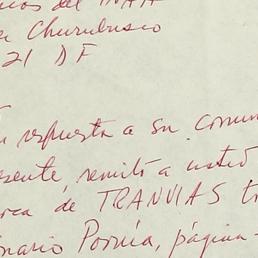 del INAH
Churubusco
21 D F
respuesta a su comun
esente, remito a usted
rca de TRANVIAS t
nario Porrúa, página